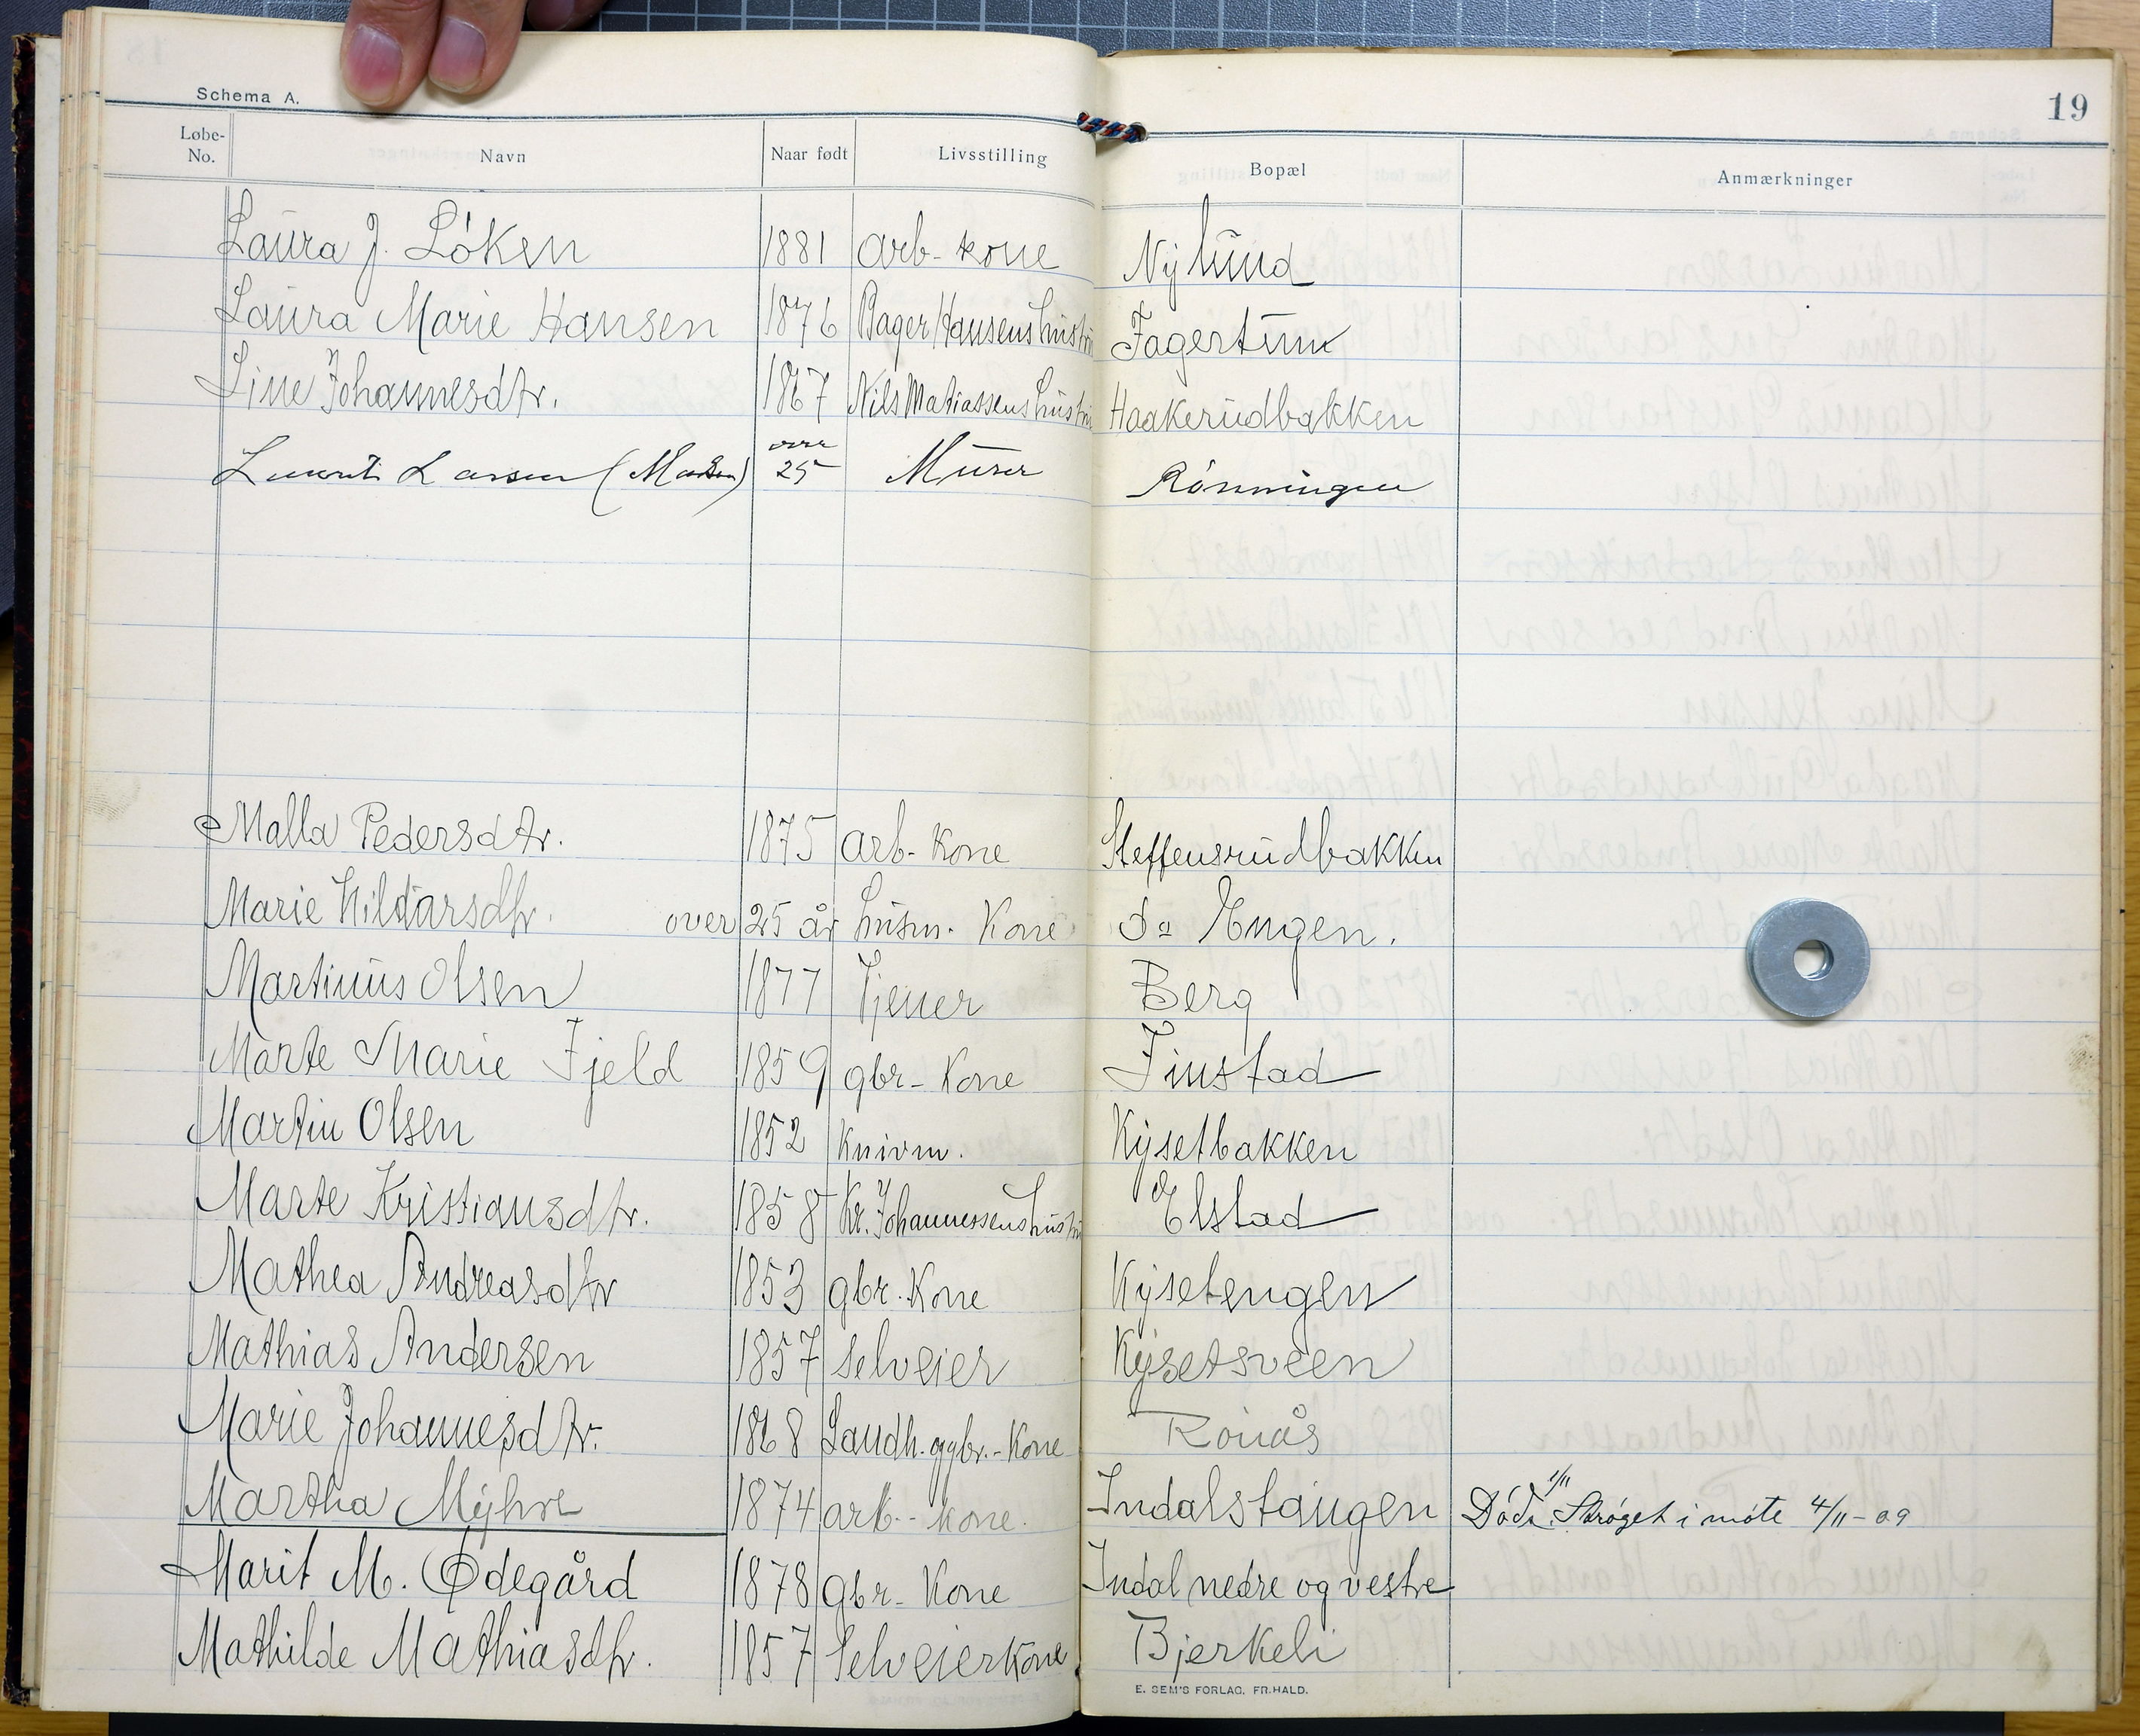 19
Schema A.
Løbe-No. Navn Naar født Livsstilling Bopæl Anmærkninger
Laura J. Løken 1881 arb- kone Nylund
Laura Marie Hansen 1876 Bager Hansens hustru Fagertun
Line Johannesdtr. 1867 Nils Matiassens hustru Haakerudbakken
Laurits Larsen (Madsen) over 25 Murer Rønningen
Malla Pedersdtr. 1875 arb- Kone Steffensrudbakken
Marie Hildarsdtr. over 25 år husm. Kone do Engen.
Martinius Olsen 1877 Tjener Berg
Marte Marie Fjeld 1859 gbr- Kone Finstad
Martin Olsen 1852 Knivm. Kysetbakken
Marte Kristiansdtr. 1858 Kr. Johannessens hustru Elstad
Mathea Andreasdtr 1853 gbr. Kone Kysetengen
Mathias Andersen 1857 selveier Kysetsveen
Marie Johannesdtr. 1868 Landh. og gbr.- Kone Ronås
Martha Myhre 1874 arb.- Kone. Indalstangen Død 1/11 Strøget i møte 4/11-09
Marit M. Ødegård 1878 gbr- Kone Indal nedre og vestre
Mathilde Mathiasdtr. 1857 Selveierkone Bjerkeli
E. SEM'S FORLAG. FR.HALD.